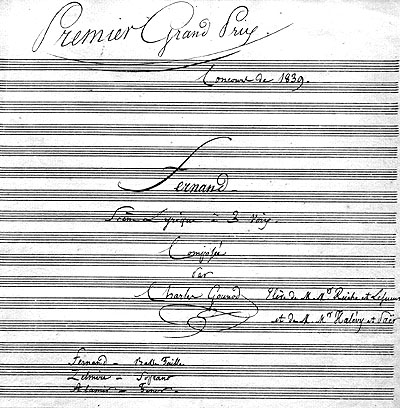 Premier Grand Prix.
Concours de 1839.
Fernand
Scène Lyrique à 3 Voix
Composée
Par
Charles Gounod Elève de M. Mrs Reicha et Lesueur
et de M. Mrs Halévy et Paër
Fernand – Basse Taille
Zelmire – Soprano
Alamir – Tenor